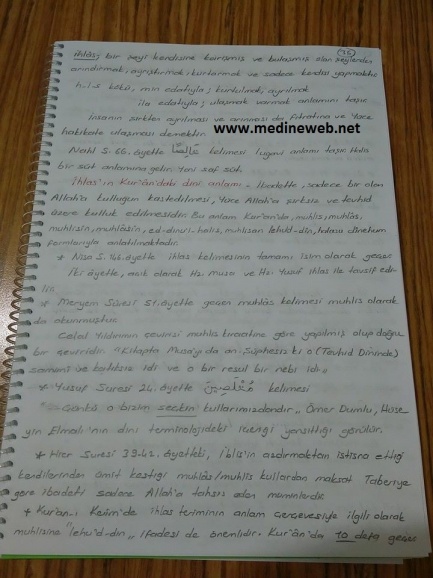 (15)
İhlâs; bir şeyi kendisine karışmış ve bulaşmış olan şeylerden
arındırmak, ayrıştırmak, kurtarmak ve sadece kendisi yapmaktır
h.l.s kökü, min edatıyla; kurtulmak, ayrılmak
ila edatıyla; ulaşmak varmak anlamını taşır
İnsanın şirkten ayrılması ve arınması da fıtratına ve Yüce
hakikate ulaşması demektir.
www.medineweb.net
Nahl S. 66. âyette خَالِصًا kelimesi lugavî anlamı taşır. Halis
bir süt anlamına gelir. Yani saf süt.
İhlas'ın Kur'ân'daki dini anlamı. İbadette, sadece bir olan
Allah'a kulluğun kastedilmesi, Yüce Allah'a şirksiz ve tevhid
üzere kulluk edilmesidir. Bu anlam Kur'ân'da, muhlis, muhlâs,
muhlisîn, muhlâsîn, ed-dinu'l-halis, muhlisan lehud-dîn, halasu dinehum
formlarıyla anlatılmaktadır.
* Nisa S. 146. âyette ihlas kelimesinin tamamı isim olarak geçer
İki âyette, açık olarak Hz. Musa ve Hz. Yusuf ihlas ile tavsif edi-
lir.
* Meryem Sûresi 51. âyette geçen muhlâs kelimesi muhlis olarak
da okunmuştur.
Celal Yıldırımın çevirisi muhlis kıraatine göre yapılmış olup doğru
bir çeviridir. "Kitapta Musa'yı da an. Şüphesiz ki o (Tevhid Dininde)
samimi ve katıksız idi ve o bir resul bir nebi idi."
* Yusuf Suresi 24. âyette مُخْلَصِينَ kelimesi
"Çünkü, o bizim seçkin kullarımızdandır" Ömer Dumlu, Hüse-
yin Elmalı'nın dini terminolojideki içeriği yansıttığı görülür.
* Hicr Suresi 39-41. âyetteki, İblis'in azdırmaktan istisna ettiği
kendilerinden ümit kestiği muhlâs/muhlis kullardan maksat Taberiye
göre ibadeti sadece Allah'a tahsis eden müminlerdir
* Kur'an-ı Kerîm'de ihlas teriminin anlam çerçevesiyle ilgili olarak
muhlisîne "lehu'd-dîn" ifadesi de önemlidir. Kur'ân'da 10 defa geçer